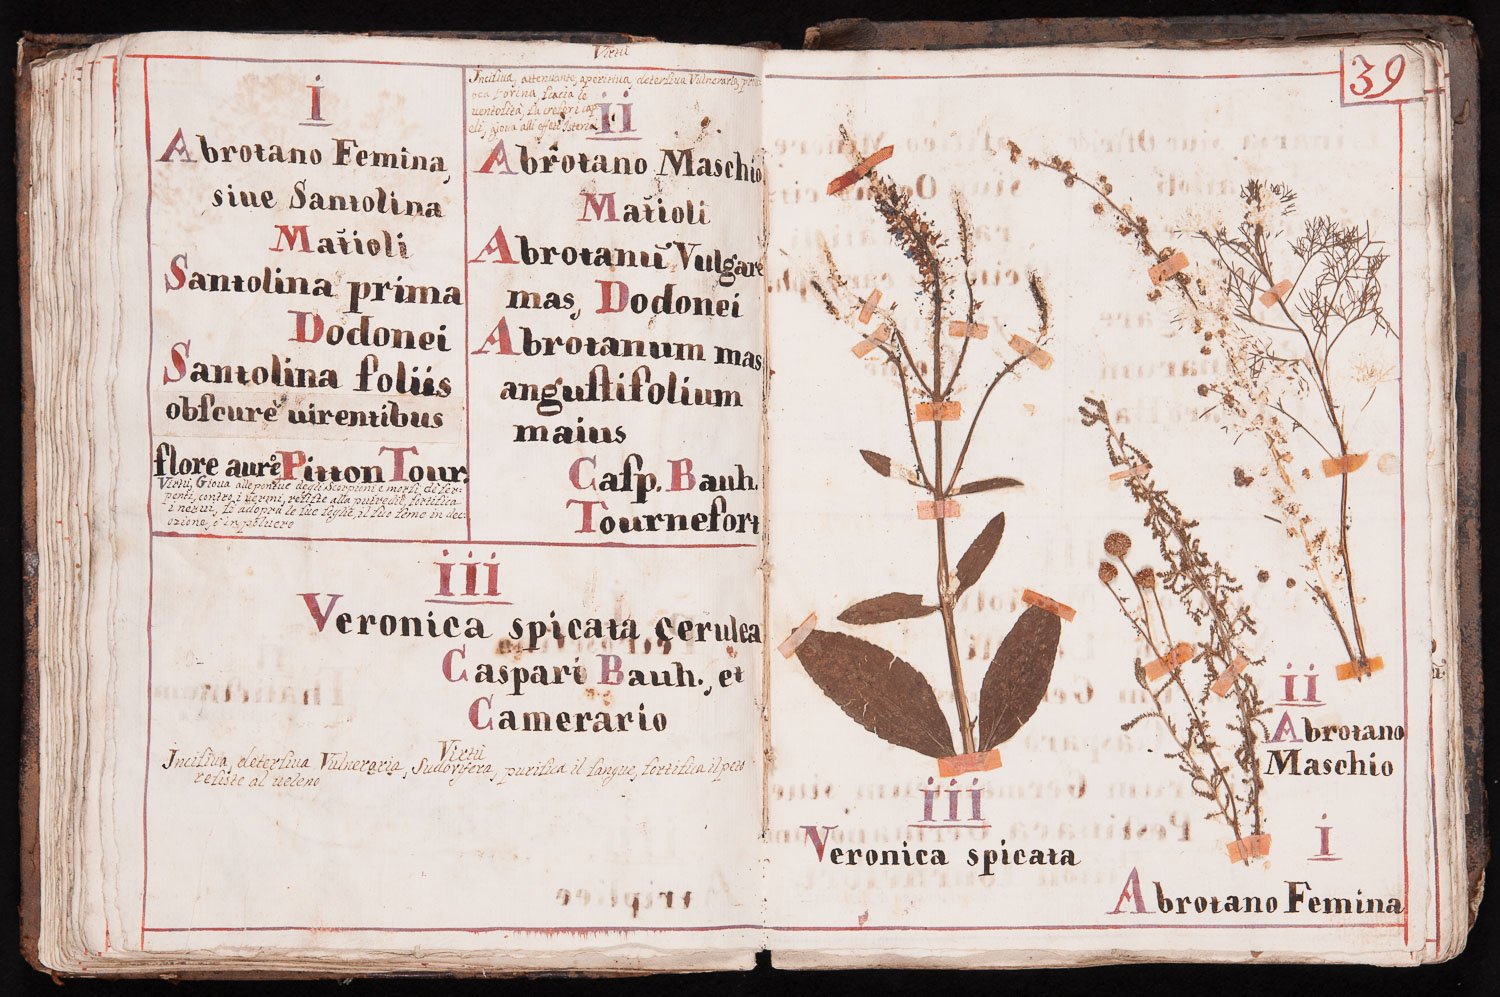 i
Abrotano Femina,
siue Santolina
Matioli
Santolina prima
Dodonei
Santolina foliis
obscure uirentibus
flore aureo Pitton Tour.
Virtù, Gioua alle ponture degli Scorpioni e morsi, di ser-
penti, contro i uermi, resiste alla putredine, fortifica
i nerui, si adopra le sue foglie, il suo seme in dec-
ozione, e in poluere
Virtù
Incisiua, attenuante, aperitiua, detersiua Vulneraria, prou
oca l'orina scacia le
uentosità, fa crescere cap
eli, gioua alli effetti Isterici
ii
Abrotano Maschio
Matioli
Abrotanū Vulgare
mas, Dodonei
Abrotanum mas
angustifolium
maius
Casp. Bauh.
Tournefort
iii
Veronica spicata cerulea
Caspari Bauh., et
Camerario
Virtù
Incisiua, detersiua Vulneraria, Sudorifera, purifica il sangue, fortifica il peto
resiste al ueleno
39
ii
Abrotano
Maschio
iii
Veronica spicata
i
Abrotano Femina